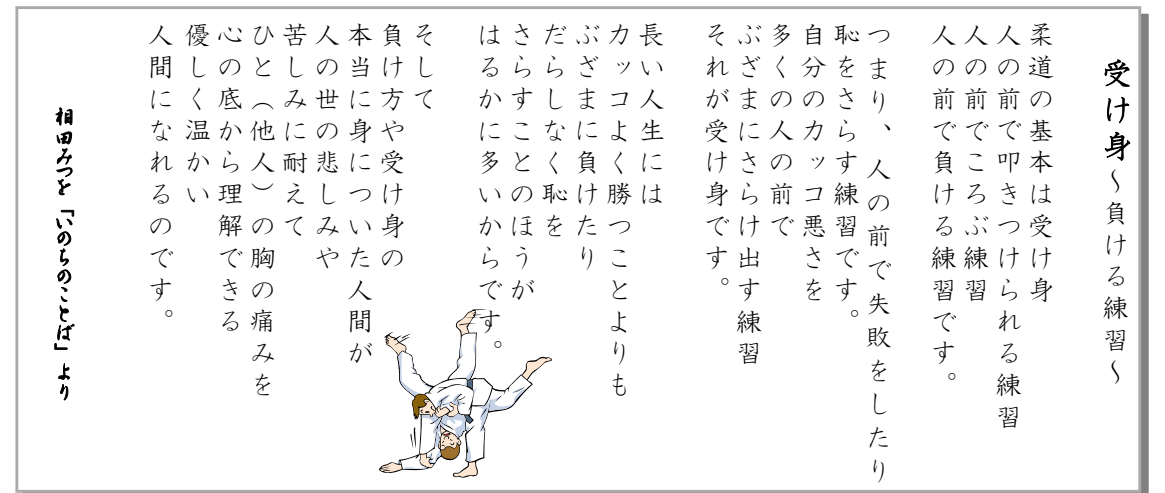 受け身～負ける練習～
柔道の基本は受け身
人の前で叩きつけられる練習
人の前でころぶ練習
人の前で負ける練習です。
つまり、人の前で失敗をしたり
恥をさらす練習です。
自分のカッコ悪さを
多くの人の前で
ぶざまにさらけ出す練習
それが受け身です。
長い人生には
カッコよく勝つことよりも
ぶざまに負けたり
だらしなく恥を
さらすことのほうが
はるかに多いからです。
そして
負け方や受け身の
本当に身についた人間が
人の世の悲しみや
苦しみに耐えて
ひと（他人）の胸の痛みを
心の底から理解できる
優しく温かい
人間になれるのです。
相田みつを「いのちのことば」より